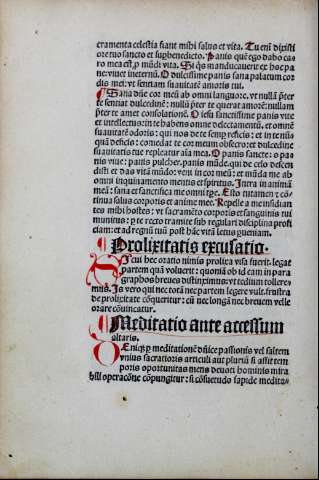 cramenta celestia fiant mihi salus et vita. Tu eni dixisti
ore tuo sancto et sup benedicto. Panis quē ego dabo ca
ro mea est, p mūdi vita. Si qs manducauerit ex hoc pa
ne: viuet ineternū. O dulcissime panis sana palatum cor
dis mei: vt sentiam suauitatē amoris tui.
Sana diīe cor meū ab omni languore. vt nullā pter
te sentiat dulcedinē: nullū pter te querat amorē: nullam
pter te amet consolationē. O iesu sanctissime panis vite
et intellectus: in te habens omne delectamentū, et omnē
suauitatē odoris: qui nos de te semp reficis: et in te nūs
quā deficis: comedat te cor meum et obsecro: et dulcedine
suauitatis tue repleatur aīa mea. O panis sancte: o pa
nis viue: panis pulcher. panis mūde. qui de celo descen
disti et das vitā mūdo: veni in cor meū: et munda me ab
omni inquinamento mentis et spiritus. Intra in animā
meā: sana et sanctifica me omnitpe. Esto tutamen et cō
tinua salus corporis et anime mee. Repelle a me insidian
tes mihi hostes: vt sacramēto corporis et sanguinis tui
munitus: p te recto tramite sub regulari disciplina profi
ciam: et ad regnū tuū post hāc vitā letus gueniam.
Prolixitatis excusatio.
Sicui hec oratio nimis prolixa visa fuerit. legat
partem quā voluerit: quoniā ob id eam in para
graphos breues distinximus: vt tedium tollere
mus. Is vero qui nec totā nec partem legere vult. frustra
de prolixitate cōqueritur: cū nec longā nec breuem velle
orare cōuincatur.
Meditatio ante accessum
altaris.
Deniqz p meditationē dn̄ice passionis vel saltem
vnius sacratioris articuli aut plurium si assit tem
poris oportunitas mens deuoti hominis mira
bili operacōne cōpungitur: si cōsuetudo sapide medita